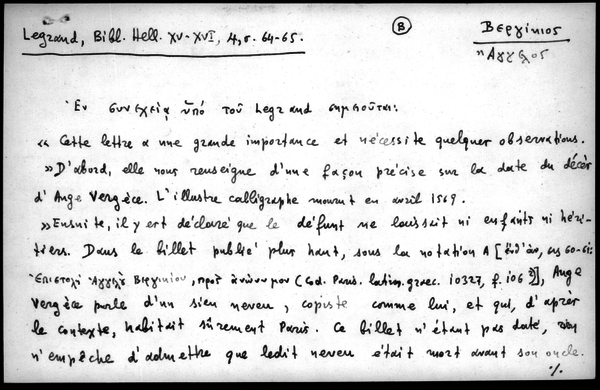 Legrand, Bibl. Hell. XV-XVI, 4, σ. 64-65.
Β
Βεργίκιος
Ἄγγελος
Ἐν συνεχείᾳ ὑπό τοῦ Legrand σημειοῦται:
« Cette lettre a une grande importance et nécessite quelques observations.
» D'abord, elle nous renseigne d'une façon précise sur la date du décès
d'Ange Vergèce. L'illustre calligraphe mourut en avril 1569.
» Ensuite, il y est déclaré que le défunt ne laissait ni enfants ni héri-
tiers. Dans le billet publié plus haut, sous la notation A [ἐνθ' ἀν, σσ 60-61:
Ἐπιστολή Ἀγγέλου Βεργικίου, πρός ἀνώνυμον (Cod. Paris. graec. 10327, f. 106)], Ange
Vergèce parle d'un sien neveu, copiste comme lui, et qui, d'après
le contexte, habitait sûrement Paris. Ce billet n'étant pas daté, rien
n'empêche d'admettre que ledit neveu était mort avant son oncle.
%.